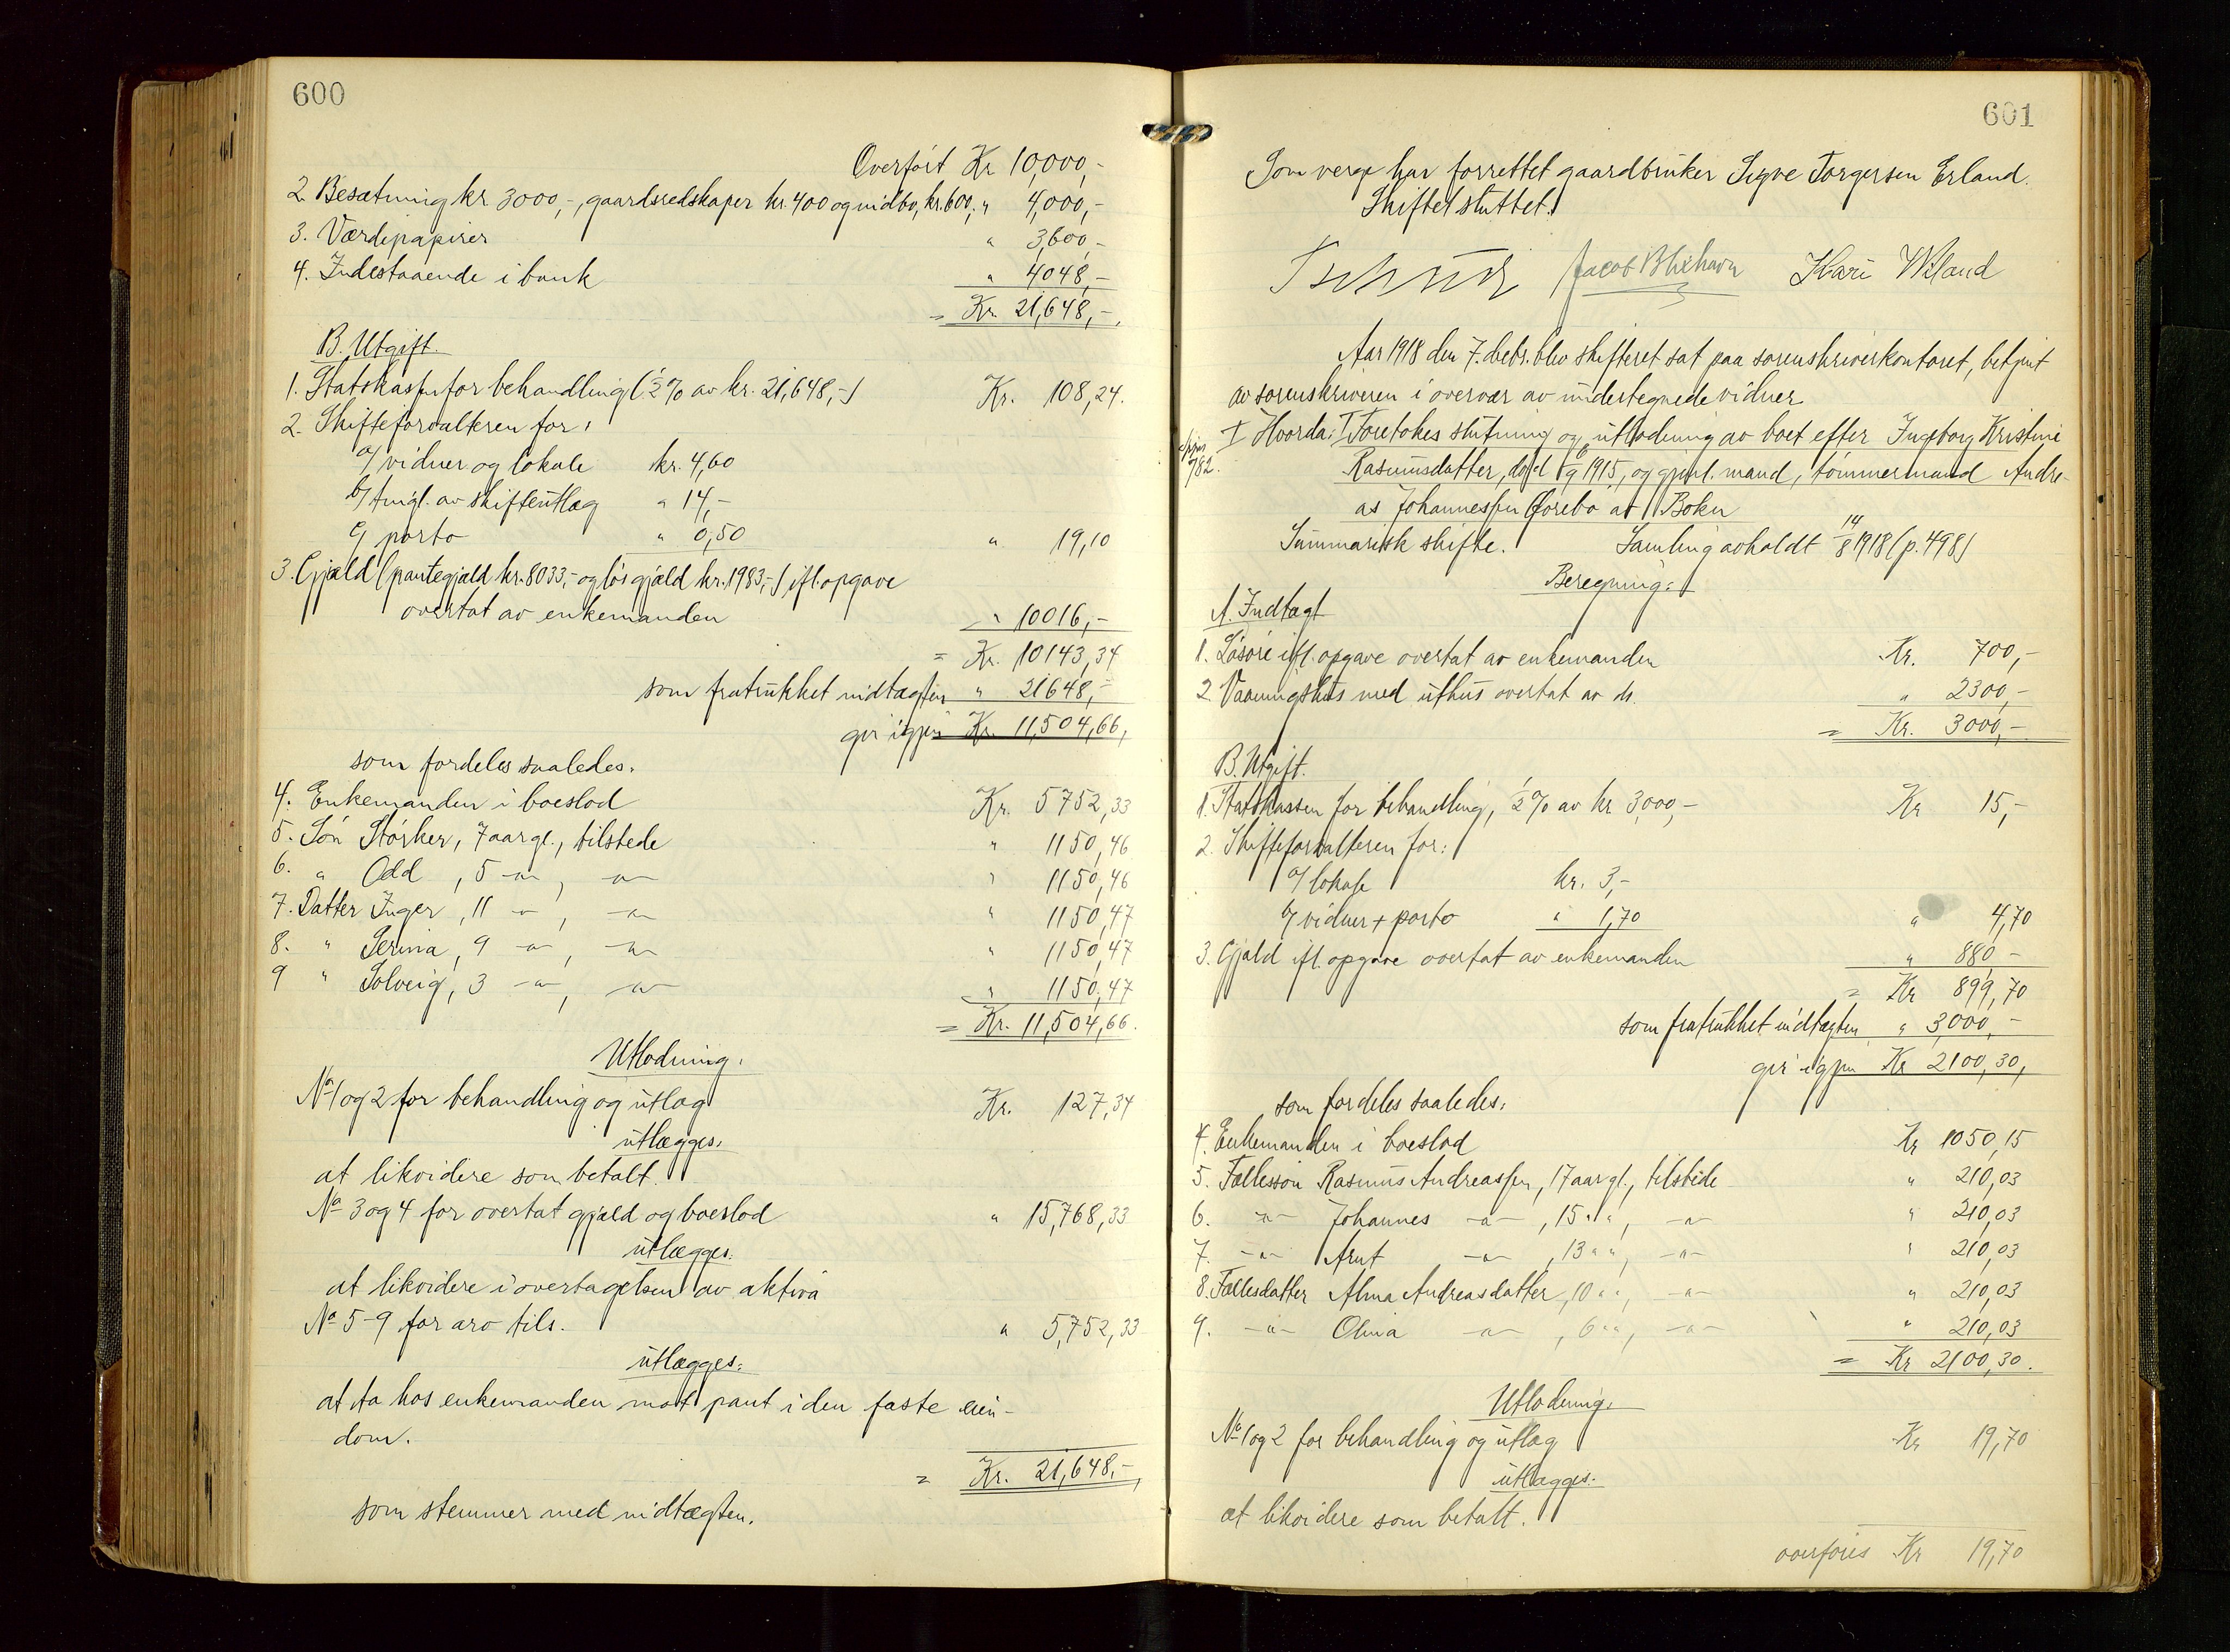 600
Overført Kr 10,000,-
2. Besætning kr 3000,-, gaardsredskaper kr. 400 og indbo, kr. 600,- " 4,000,-
3. Værdipapirer " 3,600-
4. Indestaaende i bank " 4048,-
= Kr. 21,648,-.
B. Utgift.
1. Statskassen for behandling (½% av kr. 21,648,-) Kr. 108,24.
2. Skifteforvalteren for:
a/ vidner og lokale kr. 4,60
b/ tingl. av skifteutlæg " 14,-
c/ porto " 0,50 " 19,10
3. Gjæld (pantegjæld kr. 8033,- og løs gjæld kr. 1983,-) ifl. opgave
overtat av enkemanden " 10016,-
= Kr. 10143,34
som fratrukket indtægten " 21648,-
gir igjen Kr. 11,504,66,
som fordeles saaledes:
4. Enkemanden i boeslod Kr. 5752,33
5. Søn Størker, 7 aar gl., tilstede " 1150,46
6. " Odd, 5 -"-, -"- " 1150,46
7. Datter Inger, 11 -"-, -"- " 1150,47
8. " Serina, 9 -"-, -"- " 1150,47
9 " Solveig, 3 -"-, -"- " 1150,47
= Kr. 11,504,66.
Utlodning:
No 1 og 2 for behandling og utlæg Kr. 127,34
utlægges:
at likvidere som betalt.
No 3 og 4 for overtat gjæld og boeslod " 15,768,33
utlægges:
at likvidere i overtagelsen av aktiva
No 5-9 for arv tils. " 5,752,33
utlægges:
at ta hos enkemanden mot pant i den faste eien-
dom.
= Kr. 21,648,-,
som stemmer med indtægten.
601
Som verge har forrettet gaardbruker Sigve Torgersen Erland.
Skiftet sluttet.
Jacob Kari
Aar 1918 den 7. decbr. blev skifteret sat paa sorenskriverkontoret, betjent
av sorenskriveren i overvær av undertegnede vidner
I Hvorda: I Foretokes slutning og utlodning av boet efter Ingeborg Kristine
782.
Rasmusdatter, død 1915, og gjenl. mand, tømmermand Andre-
as Johannessen Øorebø av Bokn
Summarisk skifte. Samling avholdt 14/8 1918 (p. 498)
Beregning:
A. Indtægt
1. Løsøre ifl. opgave overtat av enkemanden Kr. 700,-
2. Vaaningshus med uthus overtat av ds. " 2300,-
= Kr. 3000,-
B. Utgift.
1. Statskassen for behandling, ½% av kr 3,000,- Kr 15,-
2. Skifteforvalteren for:
a/ lokale kr. 3,-
b/ vidner + porto " 1,70 " 4,70
3. Gjæld ifl. opgave overtat av enkemanden " 880 -
= Kr 899,70
som fratrukket indtægten " 3,000,-
gir igjen Kr 2100,30,
som fordeles saaledes:
4. Enkemanden i boeslod Kr 1050,15
5. Fællessøn Rasmus Andreassen, 17 aar gl., tilstede " 210,03
6. -"- Johannes -"-, 15 " ", -"- " 210,03
7. -"- Arnt -"-, 13 " ", -"- " 210,03
8. Fællesdatter Alma Andreasdatter, 10 " ", -"- " 210,03
9. -"- Olina -"-, 6 " ", -"- " 210,03
= Kr 2100,30.
Utlodning:
No 1 og 2 for behandling og utlæg Kr 19,70
utlægges:
at likvidere som betalt.
overføres Kr 19,70